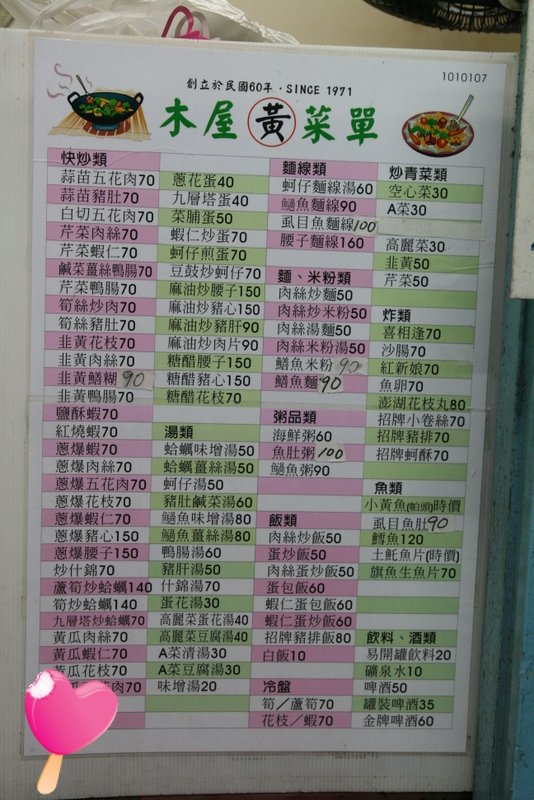 1010107
創立於民國60年·SINCE 1971
木屋黃菜單
快炒類
蒜苗五花肉70
蒜苗豬肚70
白切五花肉70
芹菜肉絲70
芹菜蝦仁70
鹹菜薑絲鴨腸70
芹菜鴨腸70
筍絲炒肉70
筍絲豬肚70
韭黃花枝70
韭黃肉絲70
韭黃鱔糊90
韭黃鴨腸70
鹽酥蝦70
紅燒蝦70
蔥爆蝦70
蔥爆肉絲70
蔥爆五花肉70
蔥爆花枝70
蔥爆蝦仁70
蔥爆豬心150
蔥爆腰子150
炒什錦70
蘆筍炒蛤蠣140
筍炒蛤蠣140
九層塔炒蛤蠣70
黃瓜肉絲70
黃瓜蝦仁70
黃瓜花枝70
肉70
蔥花蛋40
九層塔蛋40
菜脯蛋50
蝦仁炒蛋70
蚵仔煎蛋70
豆鼓炒蚵仔70
麻油炒腰子150
麻油炒豬心150
麻油炒豬肝90
麻油炒肉片90
糖醋腰子150
糖醋豬心150
糖醋花枝70
湯類
蛤蠣味增湯50
蛤蠣薑絲湯50
蚵仔湯50
豬肚鹹菜湯60
鮸魚味增湯80
鮸魚薑絲湯80
鴨腸湯60
豬肝湯50
什錦湯70
蛋花湯30
高麗菜蛋花湯40
高麗菜豆腐湯40
A菜清湯30
A菜豆腐湯30
味增湯20
麵線類
蚵仔麵線湯60
鮸魚麵線90
虱目魚麵線100
腰子麵線160
麵、米粉類
肉絲炒麵50
肉絲炒米粉50
肉絲湯麵50
肉絲米粉湯50
鱔魚米粉90
鱔魚麵90
粥品類
海鮮粥60
魚肚粥100
鮸魚粥90
飯類
肉絲炒飯50
蛋炒飯50
肉絲蛋炒飯50
蛋包飯60
蝦仁蛋包飯60
蝦仁蛋炒飯60
招牌豬排飯80
白飯10
冷盤
筍/蘆筍70
花枝/蝦70
炒青菜類
空心菜30
A菜30
高麗菜30
韭黃50
芹菜50
炸類
喜相逢70
沙腸70
紅新娘70
魚卵70
澎湖花枝丸80
招牌小卷絲70
招牌豬排70
招牌蚵酥70
魚類
小黃魚(帕頭)時價
虱目魚肚90
鱈魚120
土魠魚片(時價)
旗魚生魚片70
飲料、酒類
易開罐飲料20
礦泉水10
啤酒50
罐裝啤酒35
金牌啤酒60